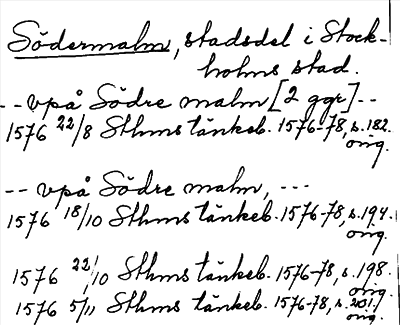 Södermalm, stadsdel i Stock-
holms stad.
-- vpå Södre malm [2 ggr] --
1576 22/8 Sthms tänkeb. 1576-78, s. 182.
orig.
-- vpå Södre malm, ---
1576 18/10 Sthms tänkeb. 1576-78, s. 194.
orig.
1576 22/10 Sthms tänkeb. 1576-78, s. 198.
orig.
1576 5/11 Sthms tänkeb. 1576-78, s. 201.
orig.